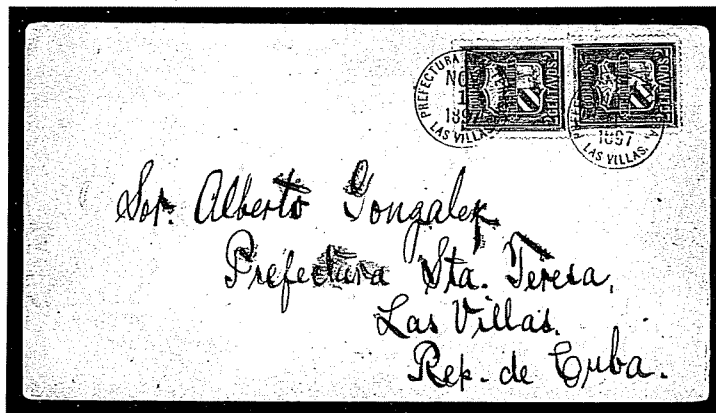 PREFECTURA
NO
1
1897
LAS VILLAS
CENTAVOS
1897
LAS VILLAS.
Sor. Alberto Gonzalez
Prefectura Sta. Teresa,
Las Villas.
Rep. de Cuba.